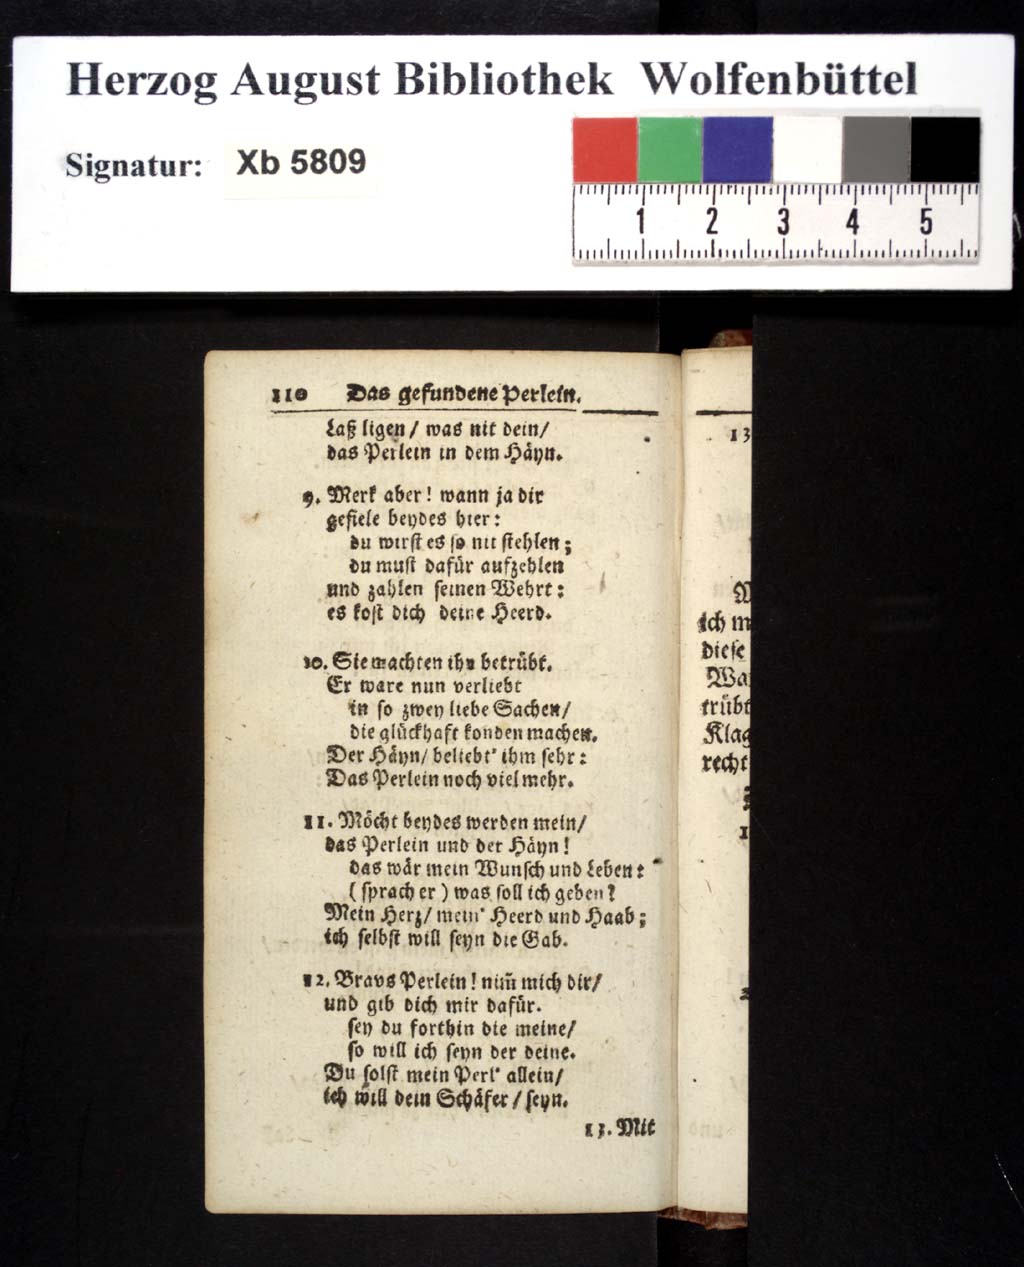 Herzog August Bibliothek Wolfenbüttel
Signatur: Xb 5809
1 2 3 4 5
110 Das gefundene Perlein.
Laß ligen / was nit dein /
das Perlein in dem Häyn.
9. Merk aber! wann ja dir
gefiele beydes hier:
du wirst es so nit stehlen;
du must dafür aufzehlen
und zahlen seinen Wehrt:
es kost dich deine Heerd.
10. Sie machten ihn betrübt.
Er ware nun verliebt
in so zwey liebe Sachen /
die glückhaft konden machen.
Der Häyn / beliebt' ihm sehr:
Das Perlein noch viel mehr.
11. Möcht beydes werden mein /
das Perlein und der Häyn!
das wär mein Wunsch und Leben:
(sprach er) was soll ich geben?
Mein Herz / mein' Heerd und Haab;
ich selbst will seyn die Gab.
12. Bravs Perlein! nim̃ mich dir /
und gib dich mir dafür.
sey du forthin die meine /
so will ich seyn der deine.
Du solst mein Perl' allein /
ich will dein Schäfer / seyn.
13. Mit
13
ich m
diese
Wa
trübt
Klag
recht